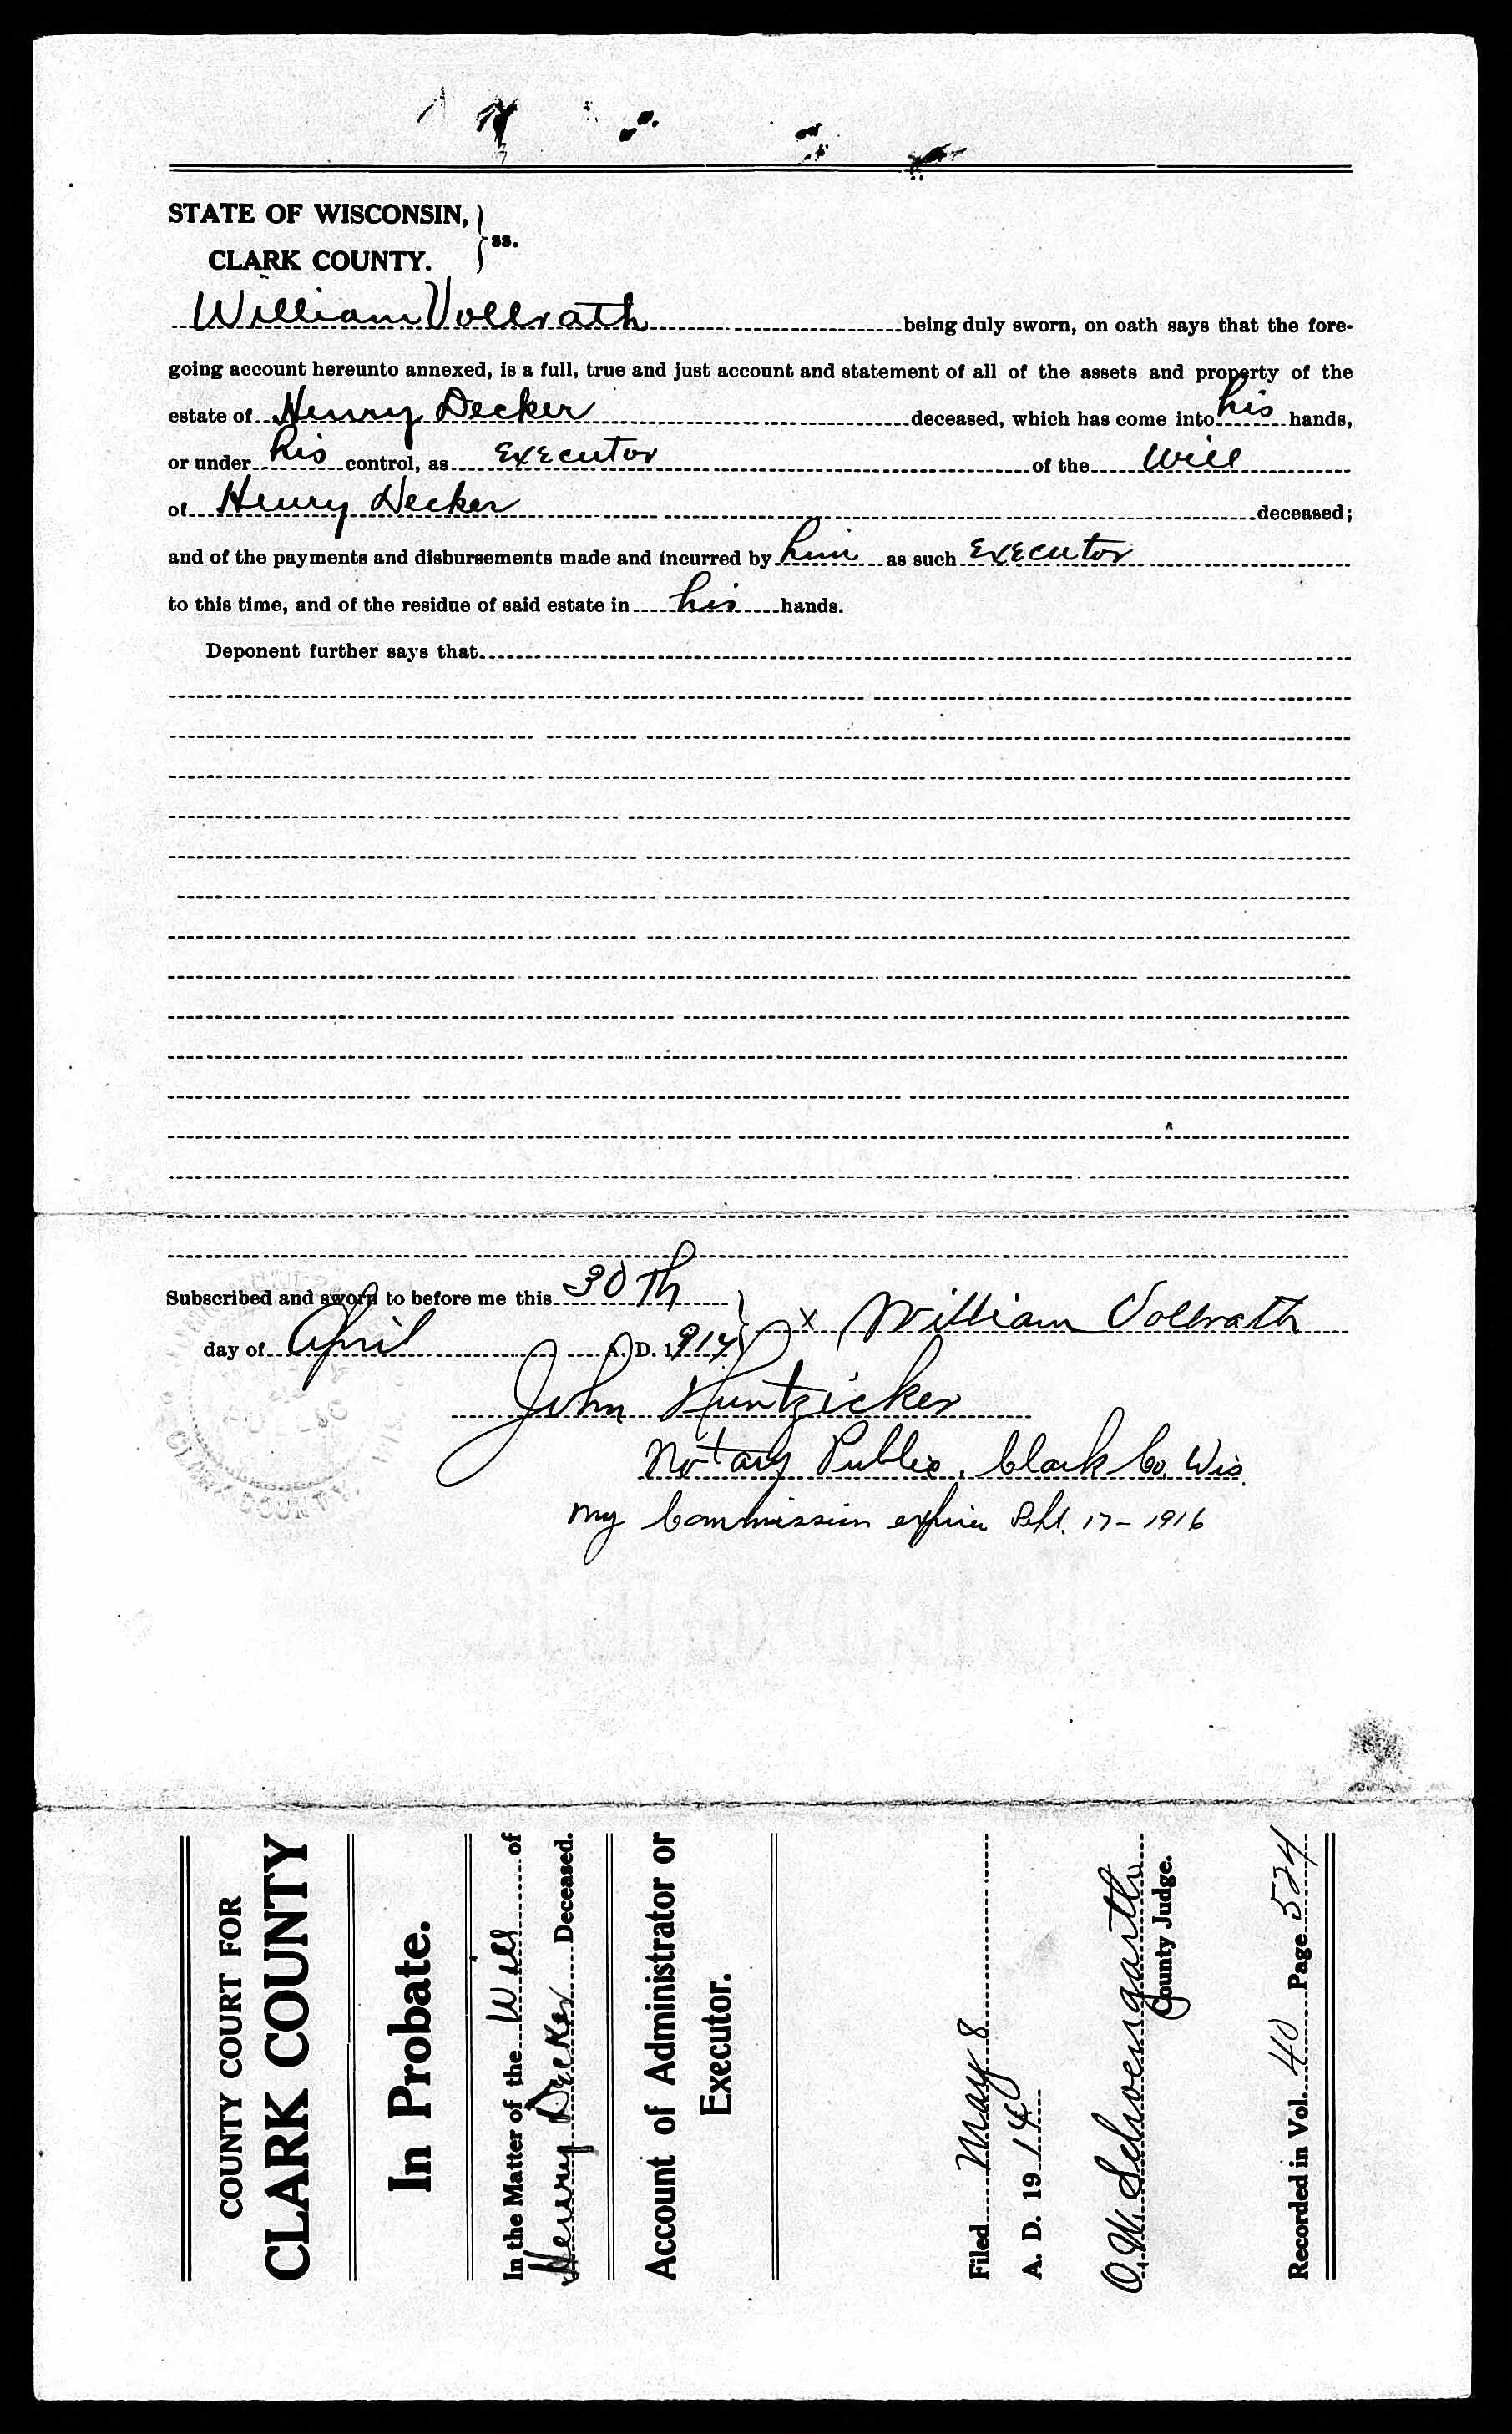 STATE OF WISCONSIN,
CLARK COUNTY.
ss.
William Vollrath being duly sworn, on oath says that the fore-
going account hereunto annexed, is a full, true and just account and statement of all of the assets and property of the
estate of Henry Decker deceased, which has come into his hands,
or under his control, as Executor of the Will
of Henry Decker deceased;
and of the payments and disbursements made and incurred by him as such Executor
to this time, and of the residue of said estate in his hands.
Deponent further says that
Subscribed and sworn to before me this 30th
day of April A. D. 1914
x William Vollrath
John Huntzicker
Notary Public, Clark Co, Wis.
My Commission expires Sept. 17-1916
CLARK COUNTY.
COUNTY COURT FOR
CLARK COUNTY
In Probate.
In the Matter of the Will of
Henry Decker Deceased.
Account of Administrator or
Executor.
Filed May 8
A. D. 1914
O. W. Schoengarth
County Judge.
Recorded in Vol. 40 Page 524